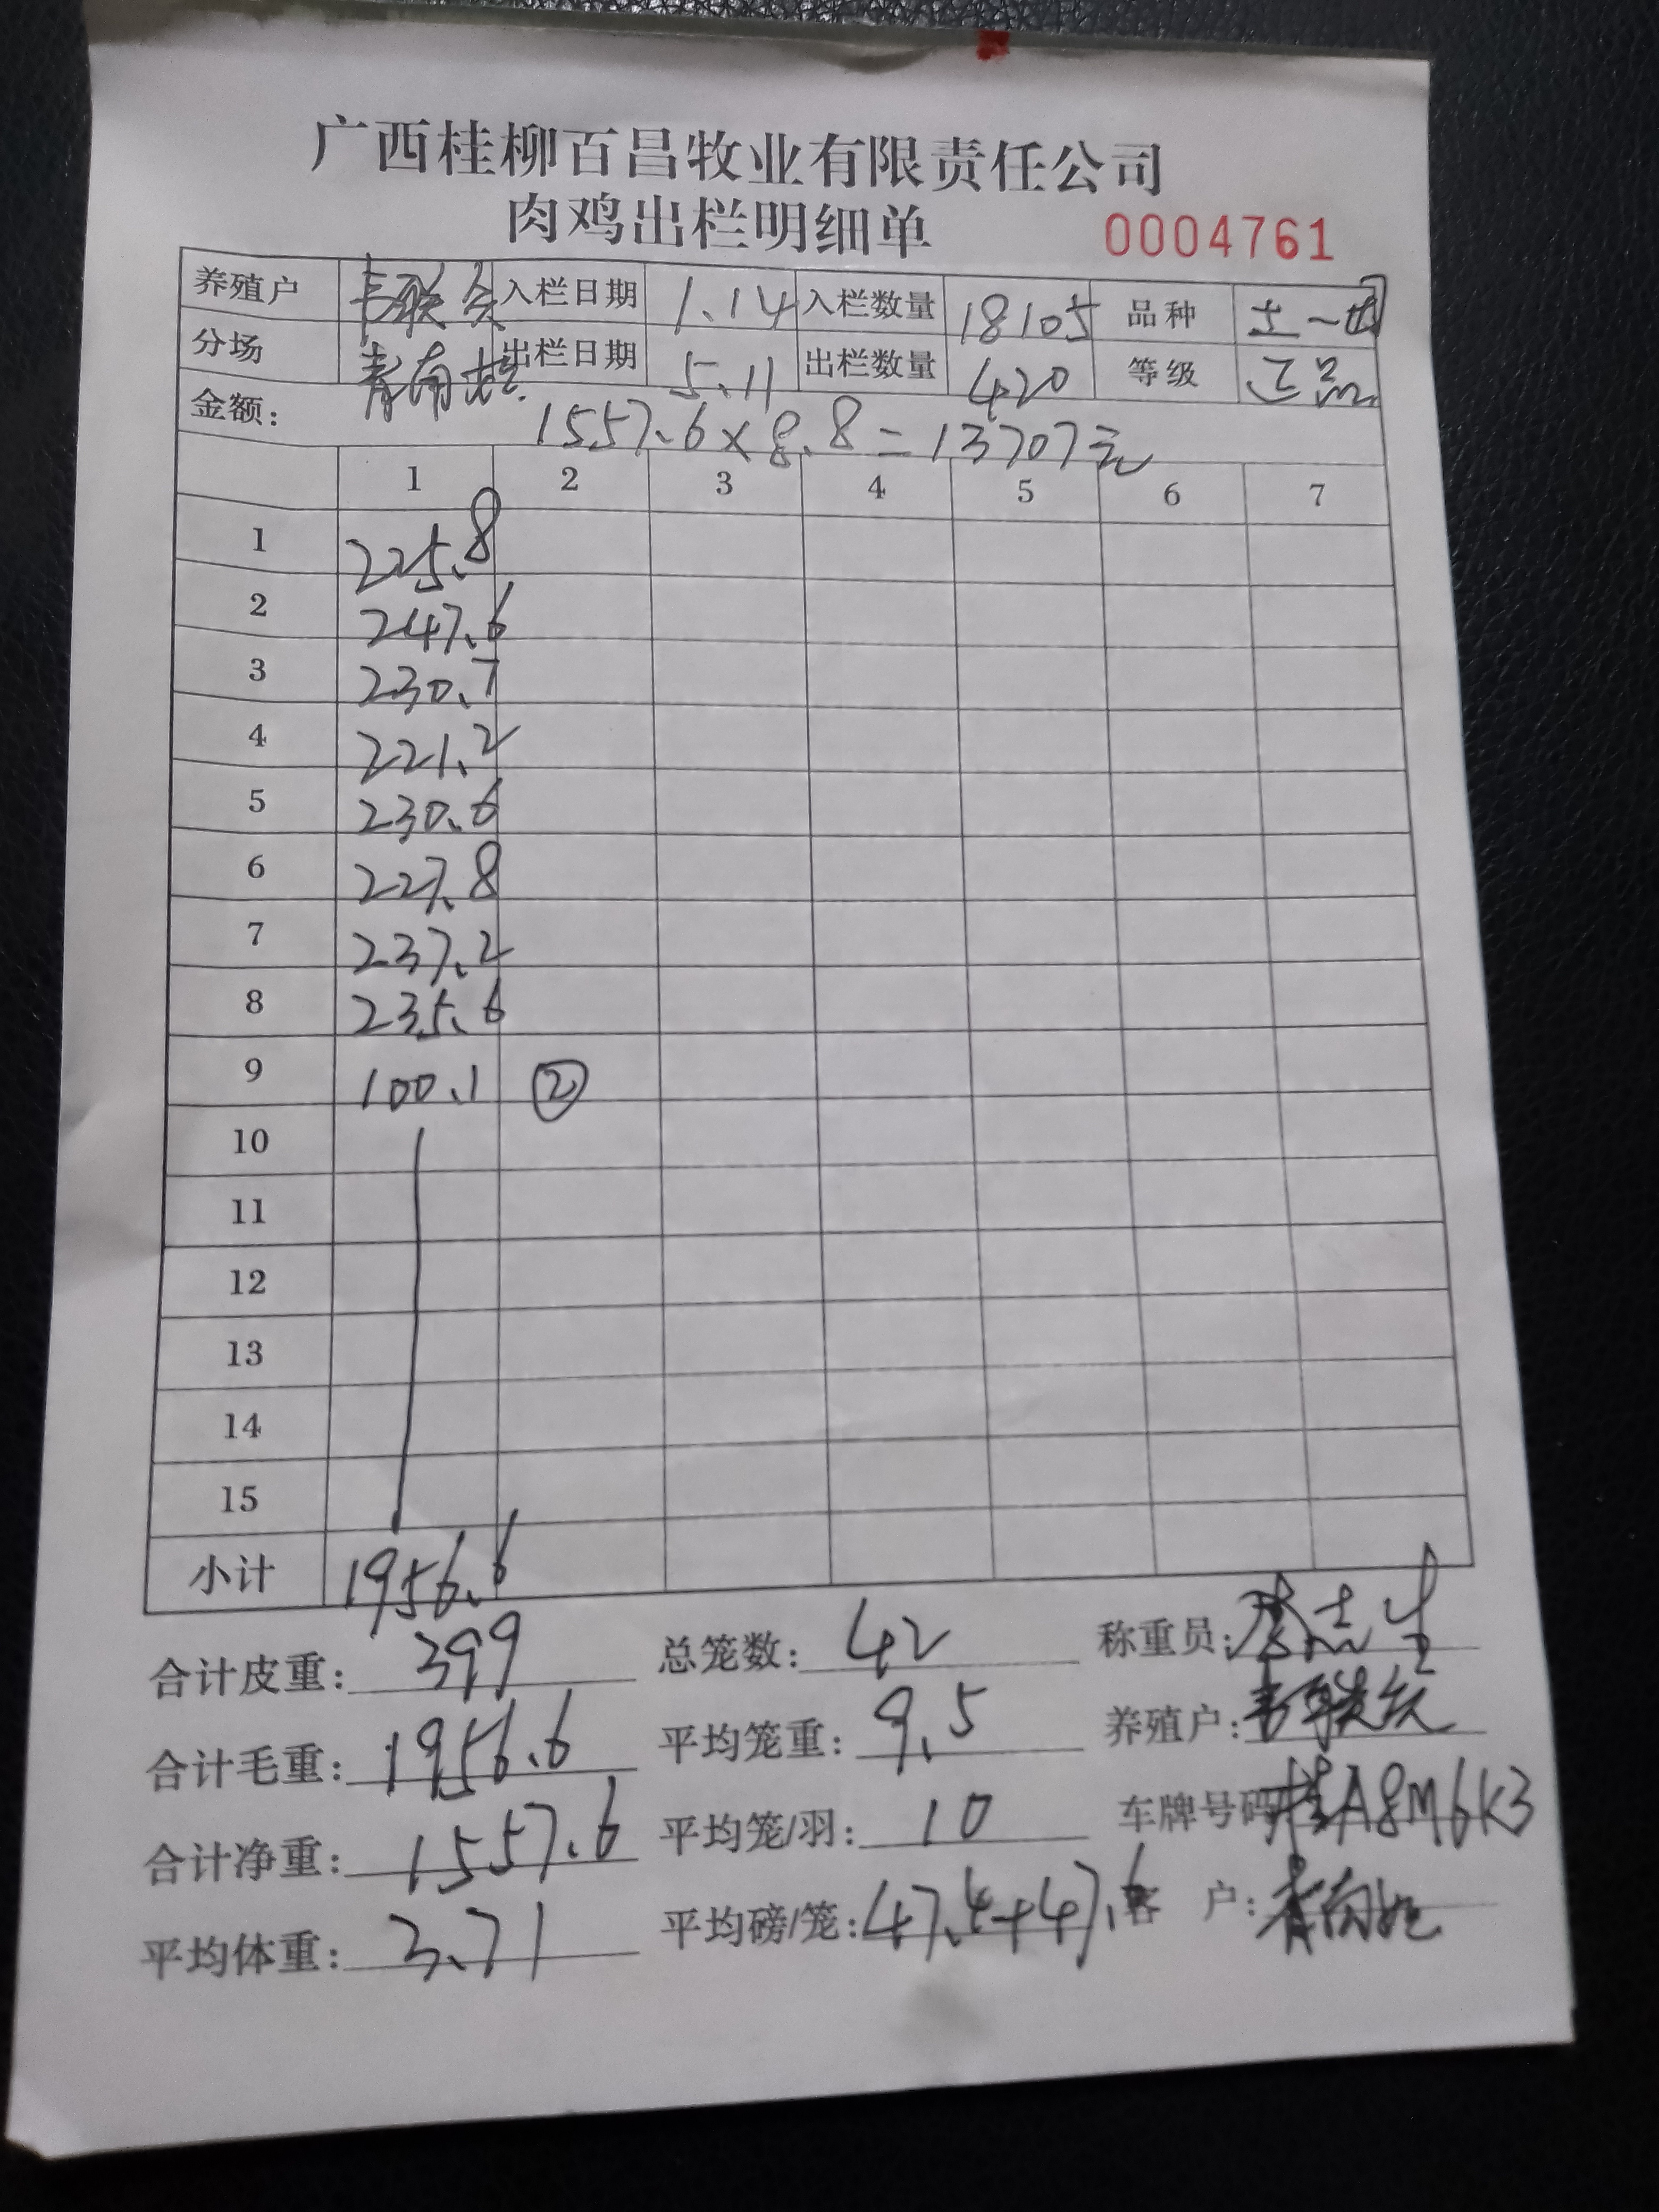 广西桂柳百昌牧业有限责任公司
肉鸡出栏明细单 0004761
养殖户 韦联 入栏日期 1.14 入栏数量 18105 品种 土一
分场 青南 出栏日期 5.11 出栏数量 420 等级 正品
金额: 1557.6×8.8=13707元
1 2 3 4 5 6 7
1 225.8
2 247.6
3 230.7
4 221.2
5 230.6
6 227.8
7 237.2
8 235.6
9 100.1 ②
10
11
12
13
14
15
小计 1956.6
合计皮重: 399 总笼数: 42 称重员: 志
合计毛重: 1956.6 平均笼重: 9.5 养殖户: 韦联
合计净重: 1557.6 平均笼/羽: 10 车牌号码 桂A8M6K3
平均体重: 3.71 平均磅/笼: 47.4+47.6 客 户: 青南